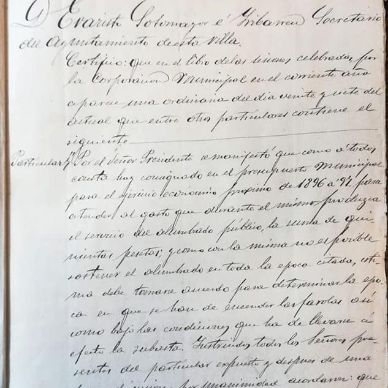 D. Evaristo Sotomayor é Iribarren Secretario
del Ayuntamiento de esta Villa.
Certifico: que en el libro de las sesiones celebradas por
la Corporacion Municipal en el corriente año
aparece una ordinaria del dia veinte y siete del
actual que entre otros particulares contiene el
siguiente
Particular Por el Señor Presidente se manifestó que como á todos
consta hay consignado en el presupuesto Municipal
para el ejercicio economico proximo de 1896 a 97 para
atender al gasto que durante el mismo produzca
el servicio del alumbrado público, la suma de qui
nientas pesetas; y como con la misma no es posible
sostener el alumbrado en toda la epoca citada, esti
ma debe tomarse acuerdo para determinar la epo
ca en que se han de encender las farolas asi
como bajo las condiciones que ha de llevarse á
efecto la subasta. Enterados todos los Señores pre
sentes del particular expuesto y despues de una
por unanimidad acordaron: que